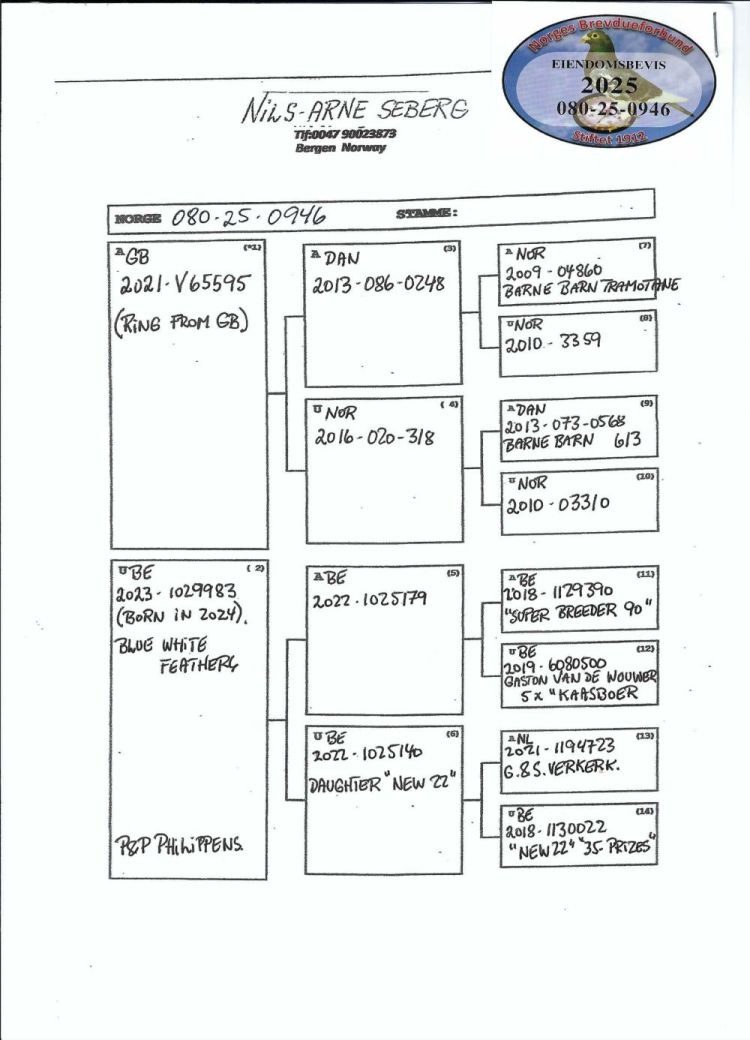 Norges Brevdueforbund
EIENDOMSBEVIS
2025
080-25-0946
Stiftet 1912
NILS-ARNE SEBERG
Tlf:0047 90023873
Bergen Norway
NORGE 080-25-0946 STAMME:
A GB (*1)
2021-V65595
(RING FROM GB)
A DAN (3)
2013-086-0248
A NOR (7)
2009-04860
BARNE BARN TRAMOTANE
U NOR (8)
2010-3359
U NOR (4)
2016-020-318
A DAN (9)
2013-073-0568
BARNE BARN 613
U NOR (10)
2010-03310
U BE (2)
2023-1029983
(BORN IN 2024).
BLUE WHITE
FEATHERS
P&P PHILIPPENS.
A BE (5)
2022-1025179
A BE (11)
2018-1129390
"SUPER BREEDER 90"
U BE (12)
2019-6080500
GASTON VAN DE WOUWER
5x "KAASBOER
U BE (6)
2022-1025140
DAUGHTER "NEW 22"
A NL (13)
2021-1194723
G.&S. VERKERK.
U BE (14)
2018-1130022
"NEW 22" "35 PRIZES"